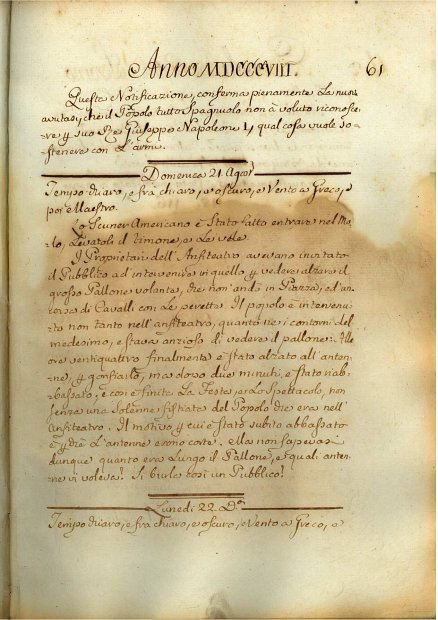 Anno MDCCCVIII. 61
Questa Notificazione, conferma pienamente La nuova
avitasi, che il Popolo tutto Spagnuolo non à voluto riconosce-
re y suo Re Giuseppe Napoleone I, y qual cosa vuole so-
stenere con L'armi.
Domenica 21 Agos
Tempo chiaro, e frà chiaro, e oscuro, e Vento a Greco, e
poi Maestro.
Lo Scuner Americano è Stato fatto entrare nel Mo-
lo, Levatoli il timone, e Le vele.
I Proprietari dell'Anfiteatro avevano invitato
il Pubblico ad intervenire in quello y vedere alzare il
grosso Pallone volante, che non andò in Piazza, ed un
corsa di Cavalli con Le Il popolo è intervenu-
to non tanto nell'anfiteatro, quanto nei contorni del
medesimo, e stava anzioso di vedere il pallone: Alle
ore ventiquattro finalmente è stato alzato all'anten-
ne, y gonfiarlo, ma dopo due minuti, è Stato riab-
bassato, e così è finita La Festa, e Lo Spettacolo, non
senza una solenne fistiata del Popolo che era nell'
Anfiteatro. Il motivo y cui è stato subito abbassato
è y chè L'antenne erono corte. ella non sapevasi
dunque quanto era Lungo il Pallone, e quali anten-
ne vi voleva? Si burla così un Pubblico?
Lunedi 22. Do
Tempo chiaro, e frà chiaro, e oscuro, e Vento a Greco, e